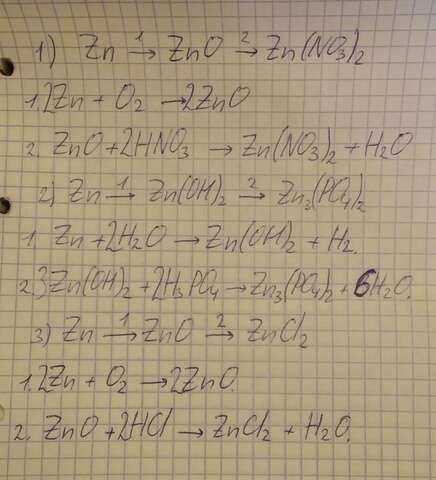 1) Zn →¹ ZnO →² Zn(NO₃)₂
1. 2Zn + O₂ → 2ZnO
2. ZnO + 2HNO₃ → Zn(NO₃)₂ + H₂O
2) Zn →¹ Zn(OH)₂ →² Zn₃(PO₄)₂
1. Zn + 2H₂O → Zn(OH)₂ + H₂.
2. 3Zn(OH)₂ + 2H₃PO₄ → Zn₃(PO₄)₂ + 6H₂O.
3) Zn →¹ ZnO →² ZnCl₂
1. 2Zn + O₂ → 2ZnO.
2. ZnO + 2HCl → ZnCl₂ + H₂O.